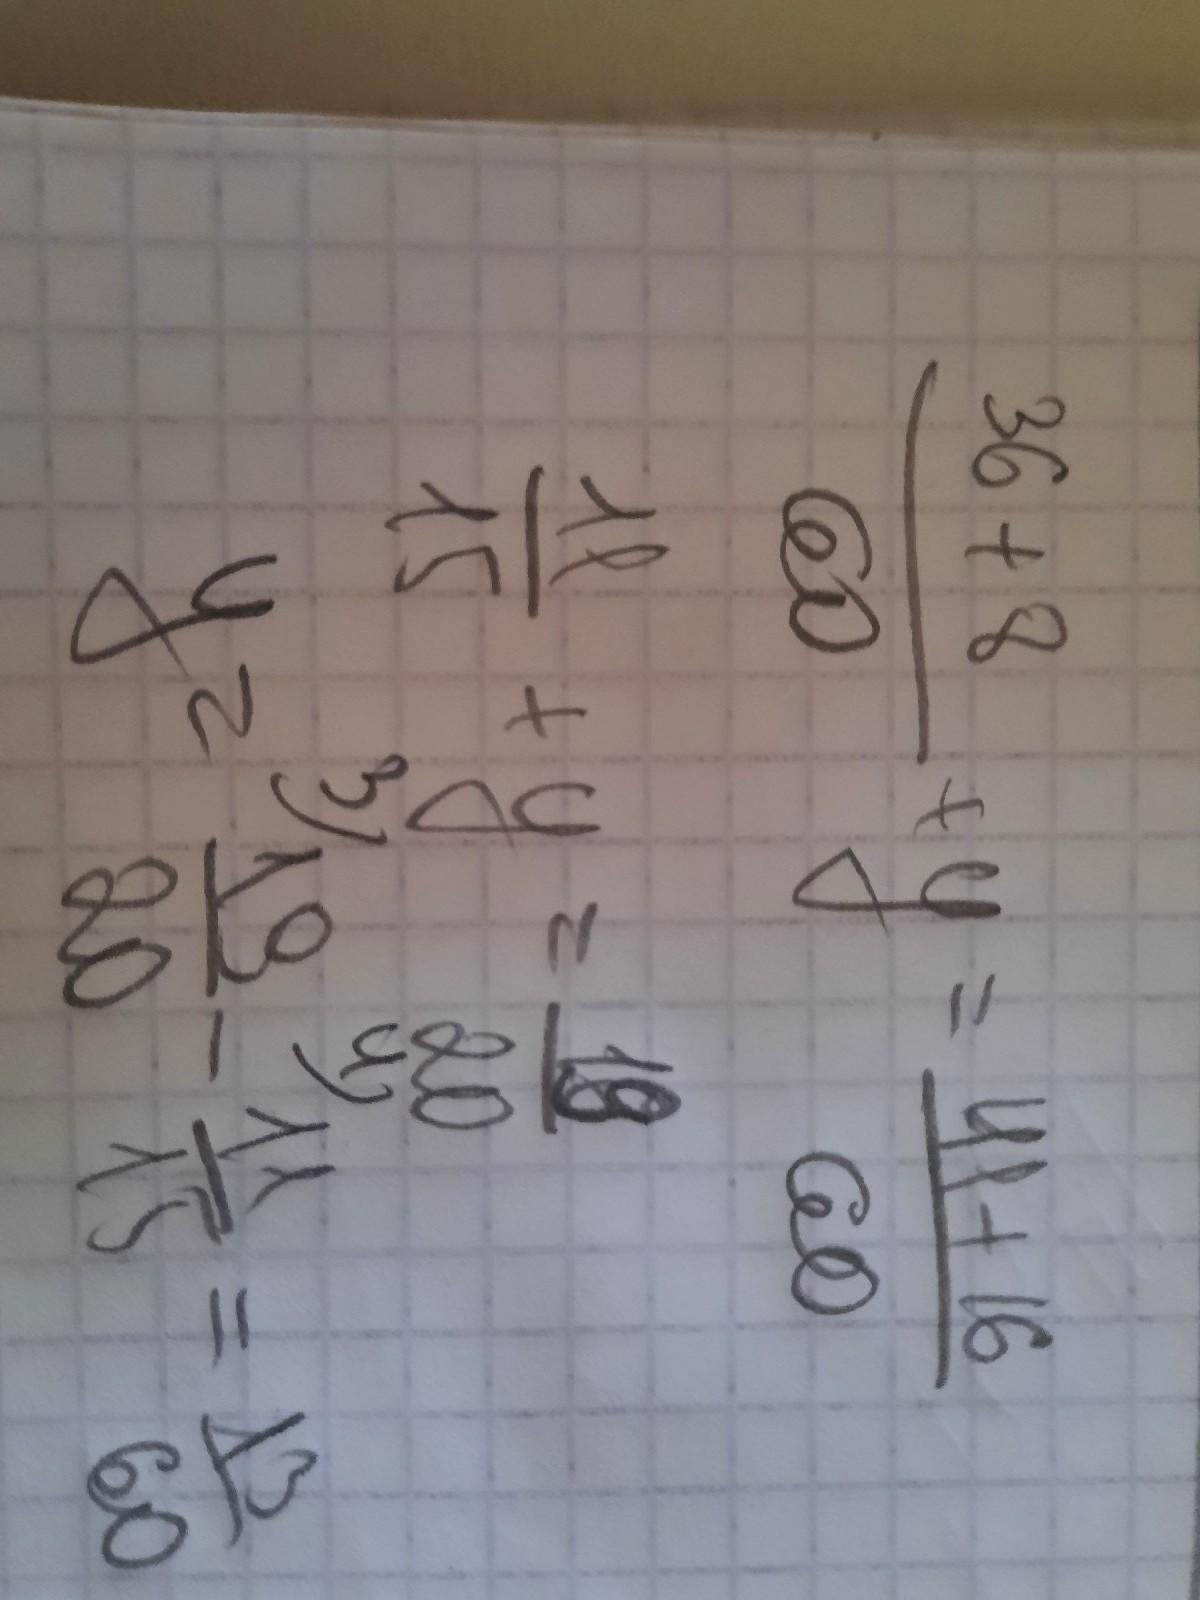 36 + 8 / 60 + y = 41 + 16 / 60
11 / 15 + y = 19 / 20
y = 3) 19 / 20 - 4) 11 / 15 = 13 / 60